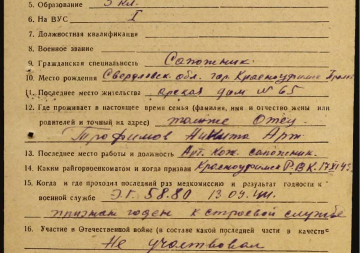 5. Образование 3 кл.
6. На ВУС I
7. Должностная квалификация
8. Военное звание
9. Гражданская специальность Сапожник.
10. Место рождения Свердловск. обл. гор. Красноуфимск
11. Последнее место жительства дом № 65
12. Где проживает в настоящее время семья (фамилия, имя и отчество жены или
родителей и точный их адрес) Отец
Трофимов Никита
13. Последнее место работы и должность Арт. Кож. сапожник.
14. Каким райгорвоенкоматом и когда призван Красноуфимск Р.В.К.
15. Когда и где проходил последний раз медкомиссию и результат годности к
военной службе 13.09.44.
признан годен к строевой службе
16. Участие в Отечественной войне (в составе какой последней части в качестве
Не участвовал